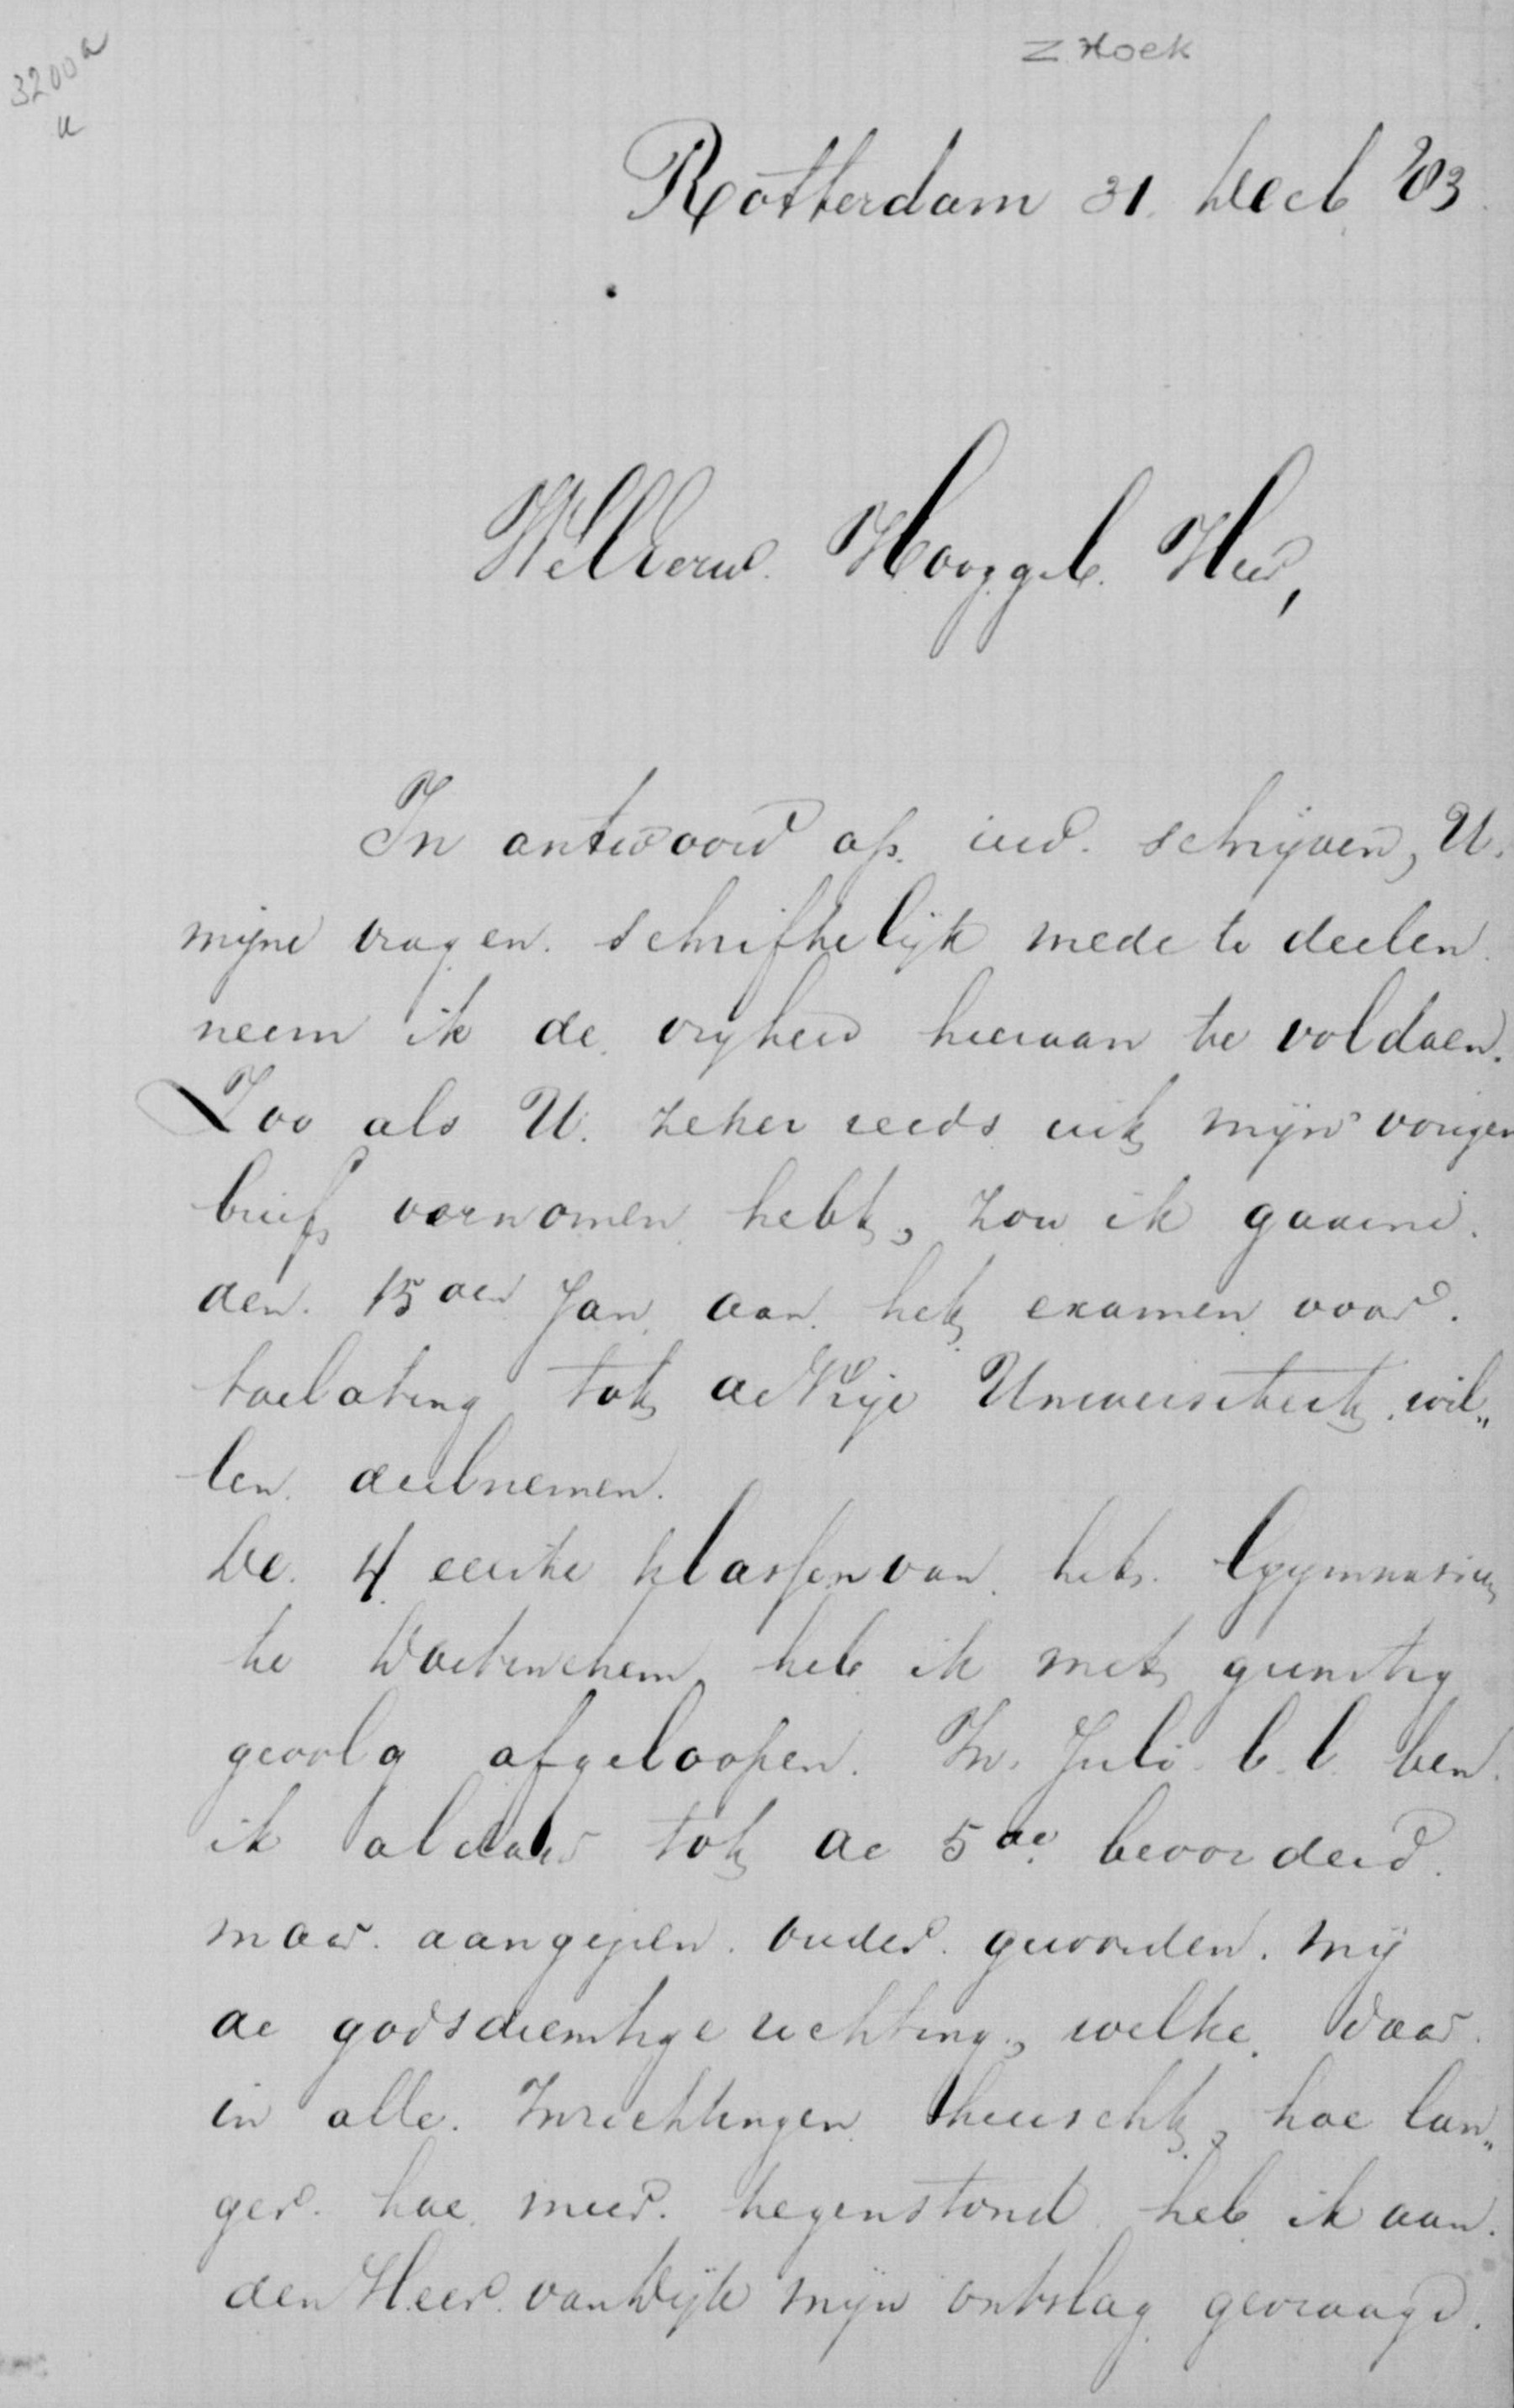 3200a
Z. Hoek
Rotterdam 31 Decb. '83
WelEerw. Hooggel. Heer,
In antwoord op uw schrijven, U.
mijne vragen schriftelijk mede te deelen
neem ik de vrijheid hieraan te voldoen.
Zoo als U. zeker reeds uit mijn vorigen
brief vernomen hebt, zou ik gaarne
den 15den Jan. aan het examen voor
toelating tot de Vrije Universiteit wil„
len deelnemen.
De 4 eerste klassen van het Gymnasium
te Doetinchem heb ik met gunstig
gevolg afgeloopen. In Juli l.l. ben
ik aldaar tot de 5de bevorderd
maar aangezien ouder geworden mij
de godsdienstige richting, welke daar
in alle Inrichtingen heerscht, hoe lan„
ger hoe meer tegenstond heb ik aan
den Heer van Dijk mijn ontslag gevraagd.